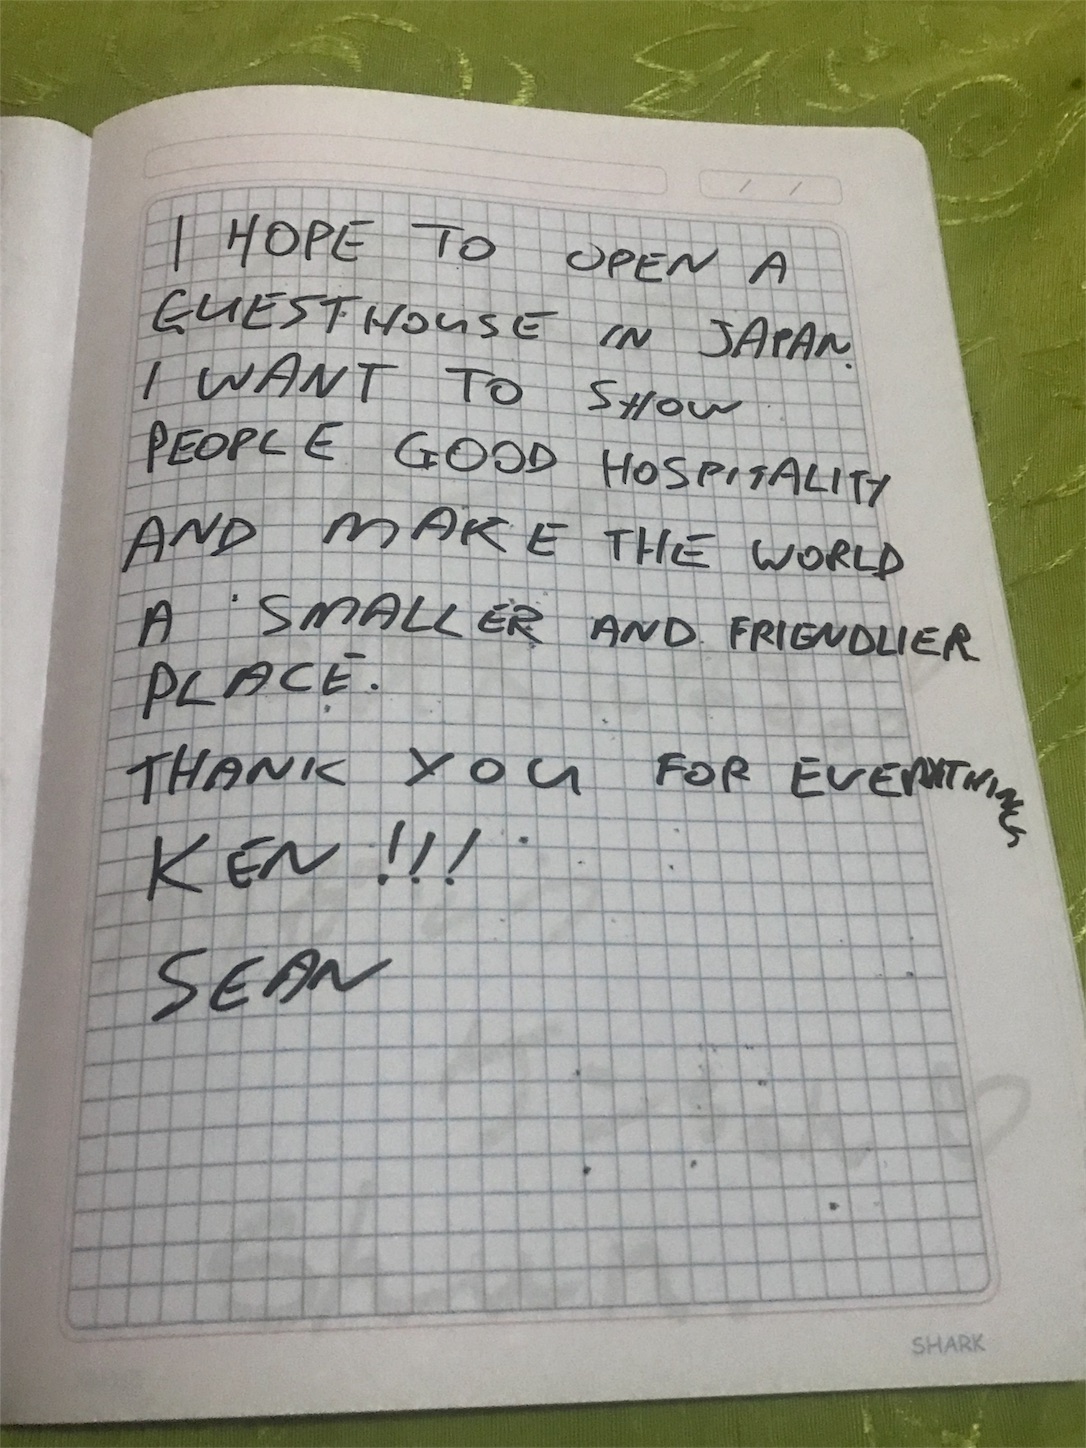 / /
I HOPE TO OPEN A
GUESTHOUSE IN JAPAN.
I WANT TO SHOW
PEOPLE GOOD HOSPITALITY
AND MAKE THE WORLD
A SMALLER AND FRIENDLIER
PLACE.
THANK YOU FOR EVERYTHING
KEN !!!
SEAN
SHARK